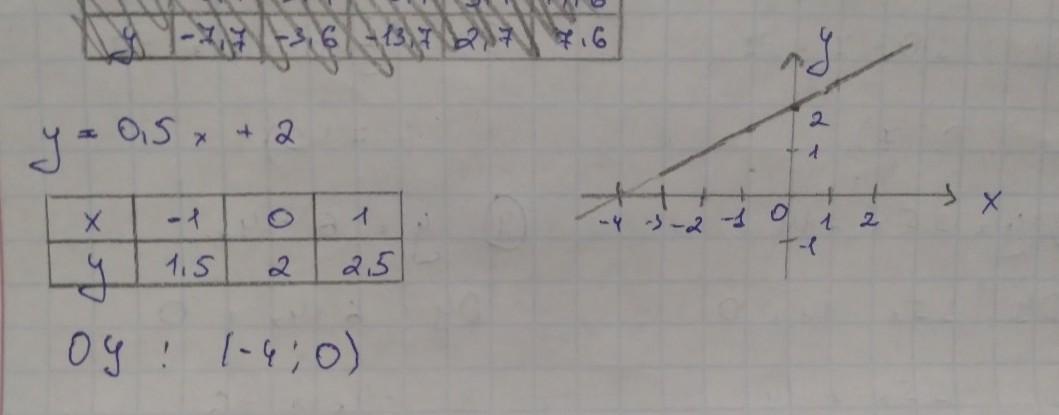 y -7,7 -3,6 -13,7 2,7 7,6
y = 0,5 x + 2
x -1 0 1
y 1,5 2 2,5
Oy : (-4; 0)
y
2
1
-4 -3 -2 -1 0 1 2 x
-1